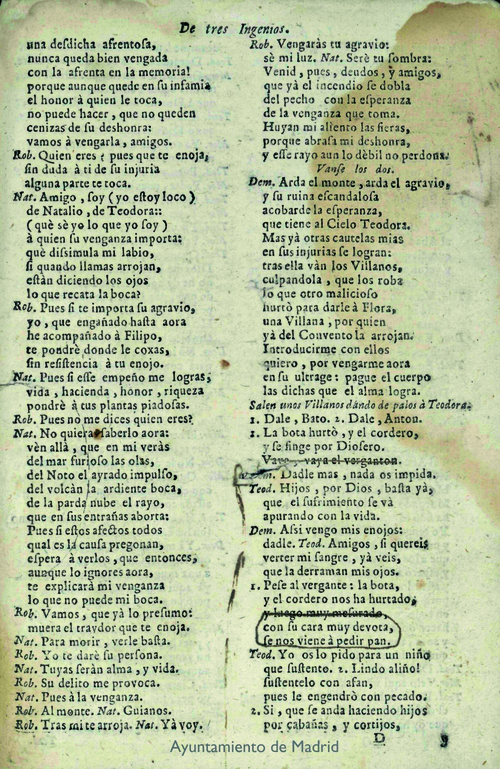 De tres Ingenios.
una desdicha afrentosa,
nunca queda bien vengada
con la afrenta en la memoria!
porque aunque quede en su infamia
el honor à quien le toca,
no puede hacer, que no queden
cenizas de su deshonra:
vamos à vengarla, amigos.
Rob. Quien eres? pues que te enoja,
sin duda à ti de su injuria
alguna parte te toca.
Nat. Amigo, soy (yo estoy loco)
de Natalio, de Teodora::
(què sè yo lo que yo soy)
à quien su venganza importa:
què dissimula mi labio,
si quando llamas arrojan,
estàn diciendo los ojos
lo que recata la boca?
Rob. Pues si te importa su agravio,
yo, que engañado hasta aora
he acompañado à Filipo,
te pondrè donde le coxas,
sin resistencia à tu enojo.
Nat. Pues si esse empeño me logras,
vida, hacienda, honor, riqueza
pondrè à tus plantas piadosas.
Rob. Pues no me dices quien eres?
Nat. No quieras saberlo aora:
vèn allà, que en mi veràs
del mar furioso las olas,
del Noto el ayrado impulso,
del volcàn la ardiente boca,
de la parda nube el rayo,
que en sus entrañas aborta:
Pues si estos afectos todos
qual es la causa pregonan,
espera à verlos, que entonces,
aunque lo ignores aora,
te explicarà mi venganza
lo que no puede mi boca.
Rob. Vamos, que yà lo presumo:
muera el traydor que te enoja.
Nat. Para morir, verle basta.
Rob. Yo te darè su persona.
Nat. Tuyas seràn alma, y vida.
Rob. Su delito me provoca.
Nat. Pues à la venganza.
Rob. Al monte. Nat. Guianos.
Rob. Tras mi te arroja. Nat. Yà voy.
Rob. Vengaràs tu agravio:
sè mi luz. Nat. Serè tu sombra:
Venid, pues, deudos, y amigos,
que yà el incendio se dobla
del pecho con la esperanza
de la venganza que toma.
Huyan mi aliento las fieras,
porque abrasa mi deshonra,
y esse rayo aun lo dèbil no perdona.
Vanse los dos.
Dem. Arda el monte, arda el agravio,
y su ruina escandalosa
acobarde la esperanza,
que tiene al Cielo Teodora.
Mas yà otras cautelas mias
en sus injurias se logran:
tras ella vàn los Villanos,
culpandola, que los roba
lo que otro malicioso
hurtò para darle à Flora,
una Villana, por quien
yà del Convento la arrojan.
Introducirme con ellos
quiero, por vengarme aora
en su ultrage: pague el cuerpo
las dichas que el alma logra.
Salen unos Villanos dando de palos à Teodora.
1. Dale, Bato. 2. Dale, Anton.
1. La bota hurtò, y el cordero,
y se finge por Diosero.
Vaya, vaya el verganton.
Dem. Dadle mas, nada os impida.
Teod. Hijos, por Dios, basta yà,
que el sufrimiento se và
apurando con la vida.
Dem. Assi vengo mis enojos:
dadle. Teod. Amigos, si quereis
verter mi sangre, yà veis,
que la derraman mis ojos.
1. Pese al vergante: la bota,
y el cordero nos ha hurtado,
y luego muy mesurado,
con su cara muy devota,
se nos viene à pedir pan.
Teod. Yo os lo pido para un niño
que sustento. 2. Lindo aliño!
sustentelo con afan,
pues le engendrò con pecado.
2. Si, que se anda haciendo hijos
por cabañas, y cortijos,
D
Ayuntamiento de Madrid